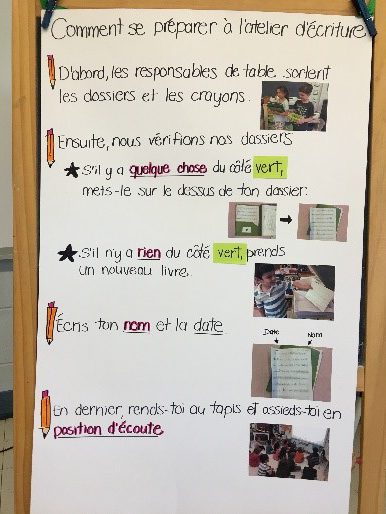 Comment se préparer à l'atelier d'écriture
D'abord, les responsables de table sortent
les dossiers et les crayons.
Ensuite, nous vérifions nos dossiers
S'il y a quelque chose du côté vert,
mets-le sur le dessus de ton dossier.
S'il n'y a rien du côté vert, prends
un nouveau livre.
Écris ton nom et la date
Date Nom
En dernier, rends-toi au tapis et assieds-toi en
position d'écoute